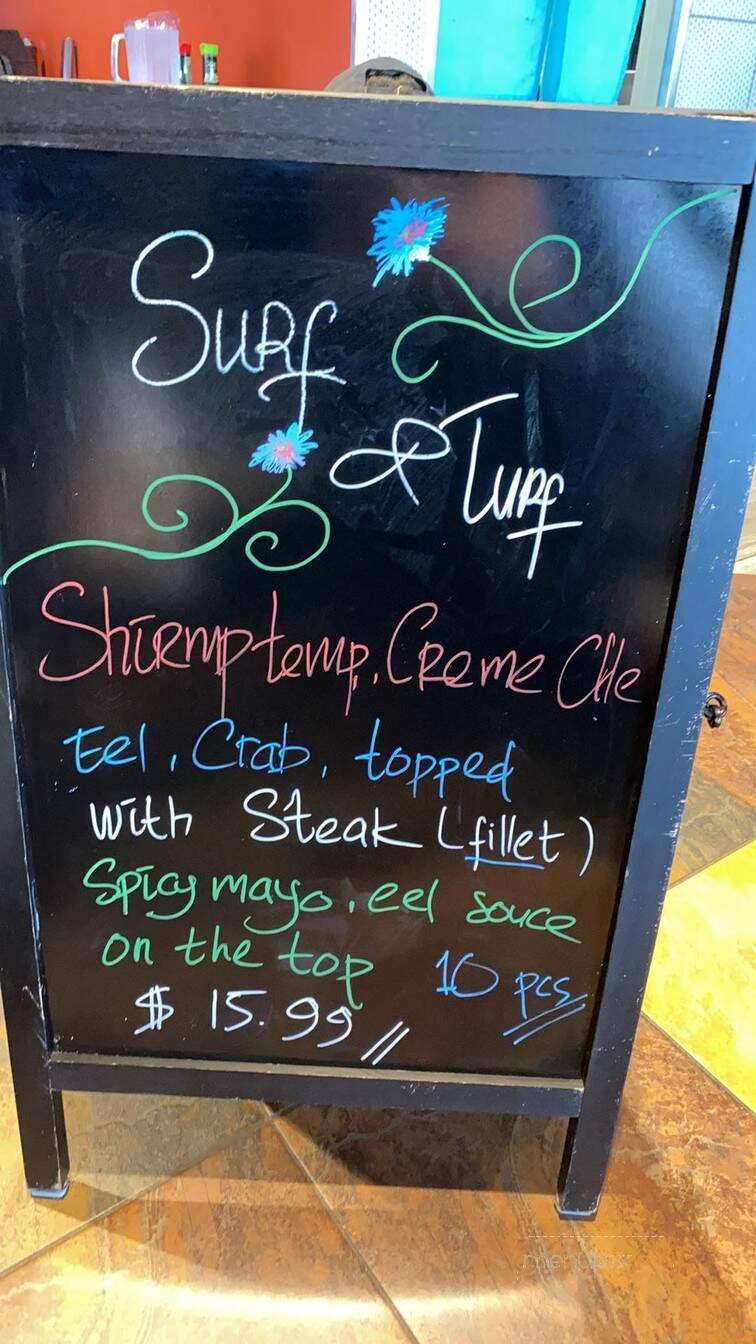 Surf
& Turf
Shirmp temp. Creme Che
Eel, Crab, topped
with Steak (fillet)
Spicy mayo, eel souce
on the top
10 pcs
$ 15.99